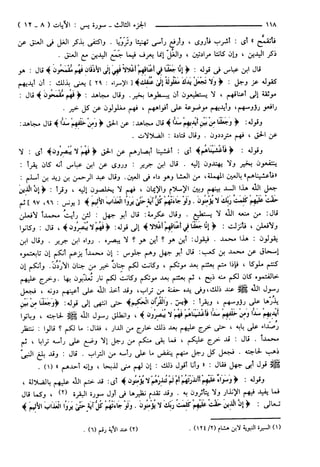 ١١٨ الجزء الثالث ـ سورة يس : الآيات ( ٨ ـ ١٢ )
فأتقمح » أي : أشرب فأروى ، وأرفع رأسي تهنيئا وتَرَوّيا . واكتفى بذكر الغل في العنق عن
ذكر اليدين ، وإن كانتا مرادتين ، والغل إنما يعرف فيما جمع اليدين مع العنق .
قال ابن عباس في قوله : ﴿ إنا جعلنا في أعناقهم أغلالا فهي إلى الأذقان فهم مقمحون ﴾ قال : هو
كقوله عز وجل : ﴿ ولا تجعل يدك مغلولة إلى عنقك ﴾ [ الإسراء : ٢٩ ] يعني بذلك : أن أيديهم
موثقة إلى أعناقهم ، لا يستطيعون أن يبسطوها بخير . وقال مجاهد : ﴿ فهم مقمحون ﴾ قال :
رافعو رؤوسهم ، وأيديهم موضوعة على أفواههم ، فهم مغلولون عن كل خير .
وقوله : ﴿ وجعلنا من بين أيديهم سدا ﴾ قال مجاهد : عن الحق ﴿ ومن خلفهم سدا ﴾ قال مجاهد :
عن الحق ، فهم مترددون . وقال قتادة : الضلالات .
وقوله : ﴿ فأغشيناهم ﴾ أي : أغشينا أبصارهم عن الحق ﴿ فهم لا يبصرون ﴾ أي : لا
ينتفعون بخير ولا يهتدون إليه . قال ابن جرير : وروي عن ابن عباس أنه كان يقرأ :
« فأعشيناهم » بالعين المهملة ، من العشا وهو داء في العين . وقال عبد الرحمن بن زيد بن أسلم :
جعل الله هذا السد بينهم وبين الإسلام والإيمان ، فهم لا يخلصون إليه ، وقرأ : ﴿ إن الذين
حقت عليهم كلمت ربك لا يؤمنون . ولو جاءتهم كل آية حتى يروا العذاب الأليم ﴾ [ يونس : ٩٦ ، ٩٧ ] ثم
قال : من منعه الله لا يستطيع . وقال عكرمة : قال أبو جهل : لئن رأيت محمدا لأفعلن
ولأفعلن ، فأنزلت : ﴿ إنا جعلنا في أعناقهم أغلالا ﴾ إلى قوله : ﴿ فهم لا يبصرون ﴾ ، قال : وكانوا
يقولون : هذا محمد . فيقول : أين هو ؟ أين هو ؟ لا يبصره . رواه ابن جرير . وقال ابن
إسحاق عن محمد بن كعب : قال أبو جهل وهم جلوس : إن محمدا يزعم أنكم إن تابعتموه
كنتم ملوكا ، فإذا متم بعثتم بعد موتكم ، وكانت لكم جنان خير من جنان الأردن . وأنكم إن
خالفتموه كان لكم منه ذبح ، ثم بعثتم بعد موتكم وكانت لكم نار تعذبون بها . وخرج عليهم
رسول الله ﷺ عند ذلك ، وفي يده حفنة من تراب ، وقد أخذ الله على أعينهم دونه ، فجعل
يذرها على رؤوسهم ، ويقرأ : ﴿ يس . والقرآن الحكيم ﴾ حتى انتهى إلى قوله : ﴿ وجعلنا من بين
أيديهم سدا ومن خلفهم سدا فأغشيناهم فهم لا يبصرون ﴾ ، وانطلق رسول الله ﷺ لحاجته ، وباتوا
رصداء على بابه ، حتى خرج عليهم بعد ذلك خارج من الدار ، فقال : ما لكم ؟ قالوا : ننتظر
محمدا . قال : قد خرج عليكم ، فما بقي منكم من رجل إلا وضع على رأسه ترابا ، ثم
ذهب لحاجته . فجعل كل رجل منهم ينفض ما على رأسه من التراب . قال : وقد بلغ النبيَّ
ﷺ قول أبي جهل فقال : « وأنا أقول ذلك : إن لهم مني لذبحا ، وإنه أحدهم » (١) .
وقوله : ﴿ وسواء عليهم أأنذرتهم أم لم تنذرهم لا يؤمنون ﴾ أي : قد ختم الله عليهم بالضلالة ،
فما يفيد فيهم الإنذار ولا يتأثرون به . وقد تقدم نظيرها في أول سورة البقرة (٢) ، وكما قال
تعالى : ﴿ إن الذين حقت عليهم كلمت ربك لا يؤمنون . ولو جاءتهم كل آية حتى يروا العذاب الأليم ﴾
(١) السيرة النبوية لابن هشام ( ١٢٤/٢ ) . (٢) عند الآية رقم ( ٦ ) .